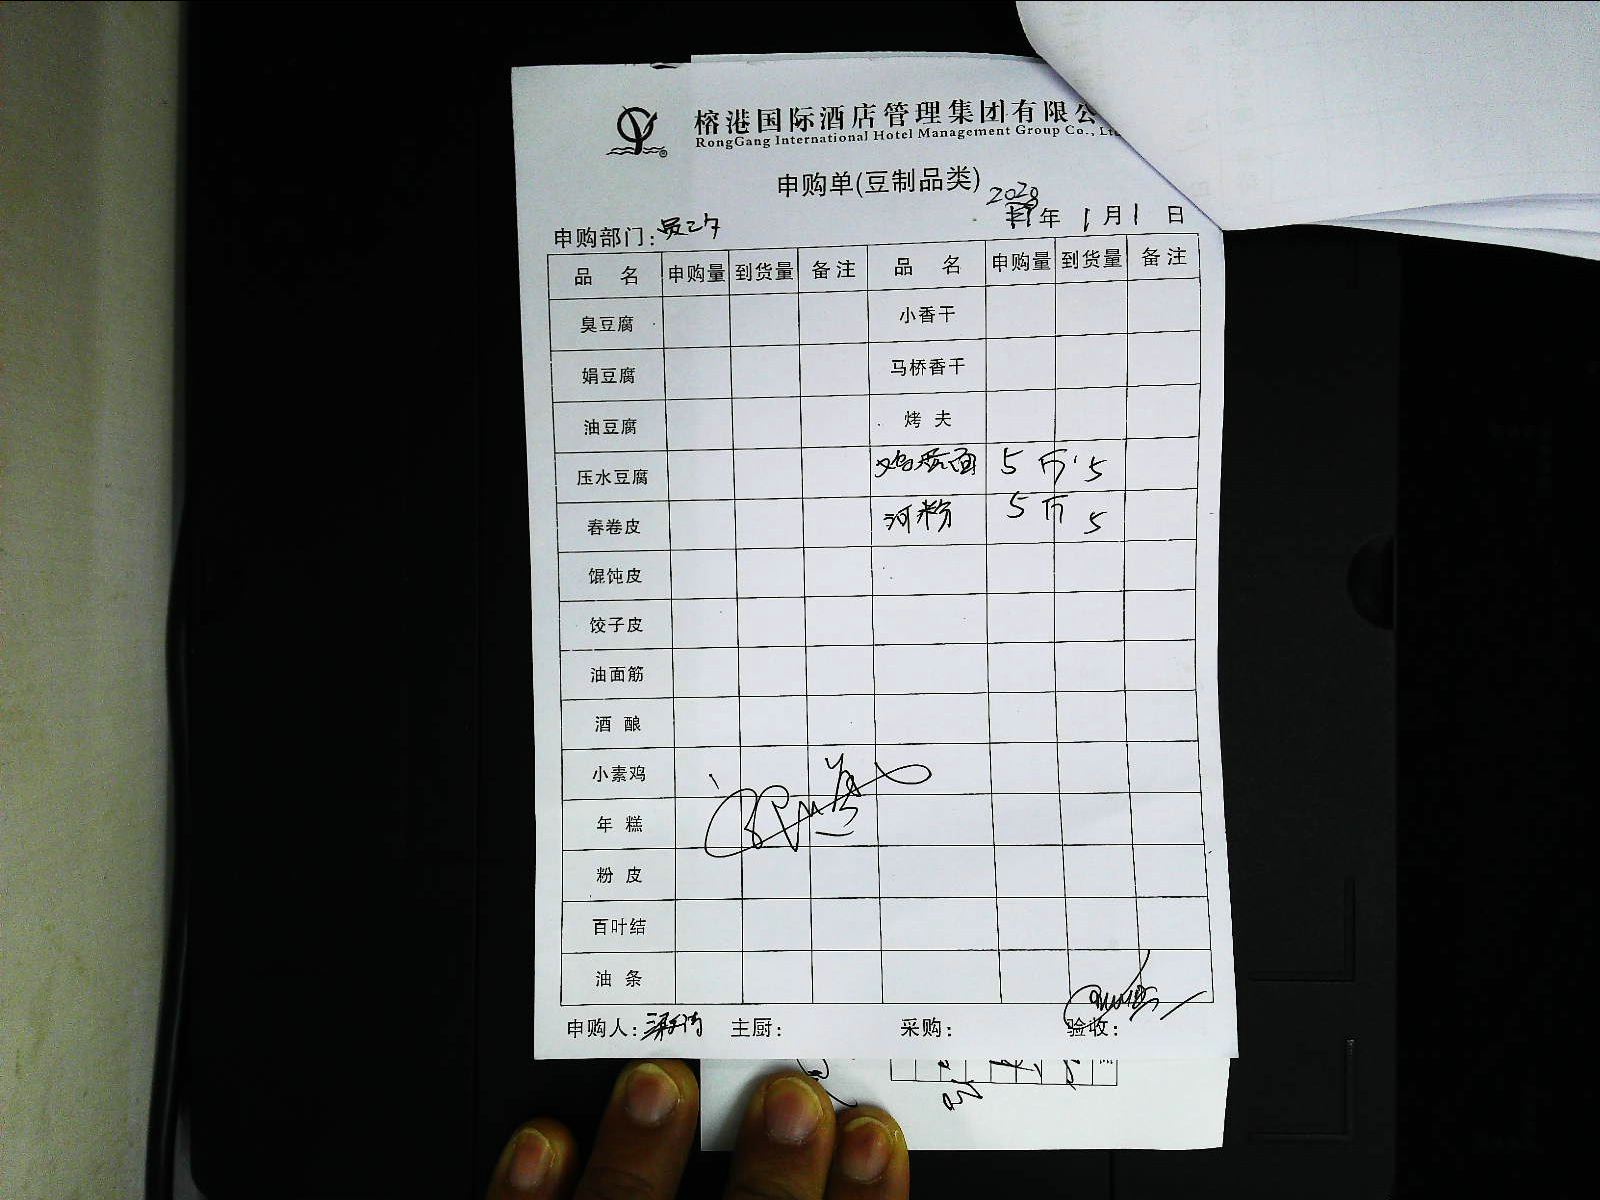 榕港国际酒店管理集团有限公
RongGang International Hotel Management Group Co., Lt
申购单(豆制品类)
2020
年 1 月 1 日
申购部门:
品 名 申购量 到货量 备注 品 名 申购量 到货量 备注
臭豆腐 小香干
娟豆腐 马桥香干
油豆腐 烤 夫
压水豆腐 鸡蛋面 5 斤 5
春卷皮 河粉 5 斤 5
馄饨皮
饺子皮
油面筋
酒 酿
小素鸡
年 糕
粉 皮
百叶结
油 条
申购人: 主厨: 采购: 验收: